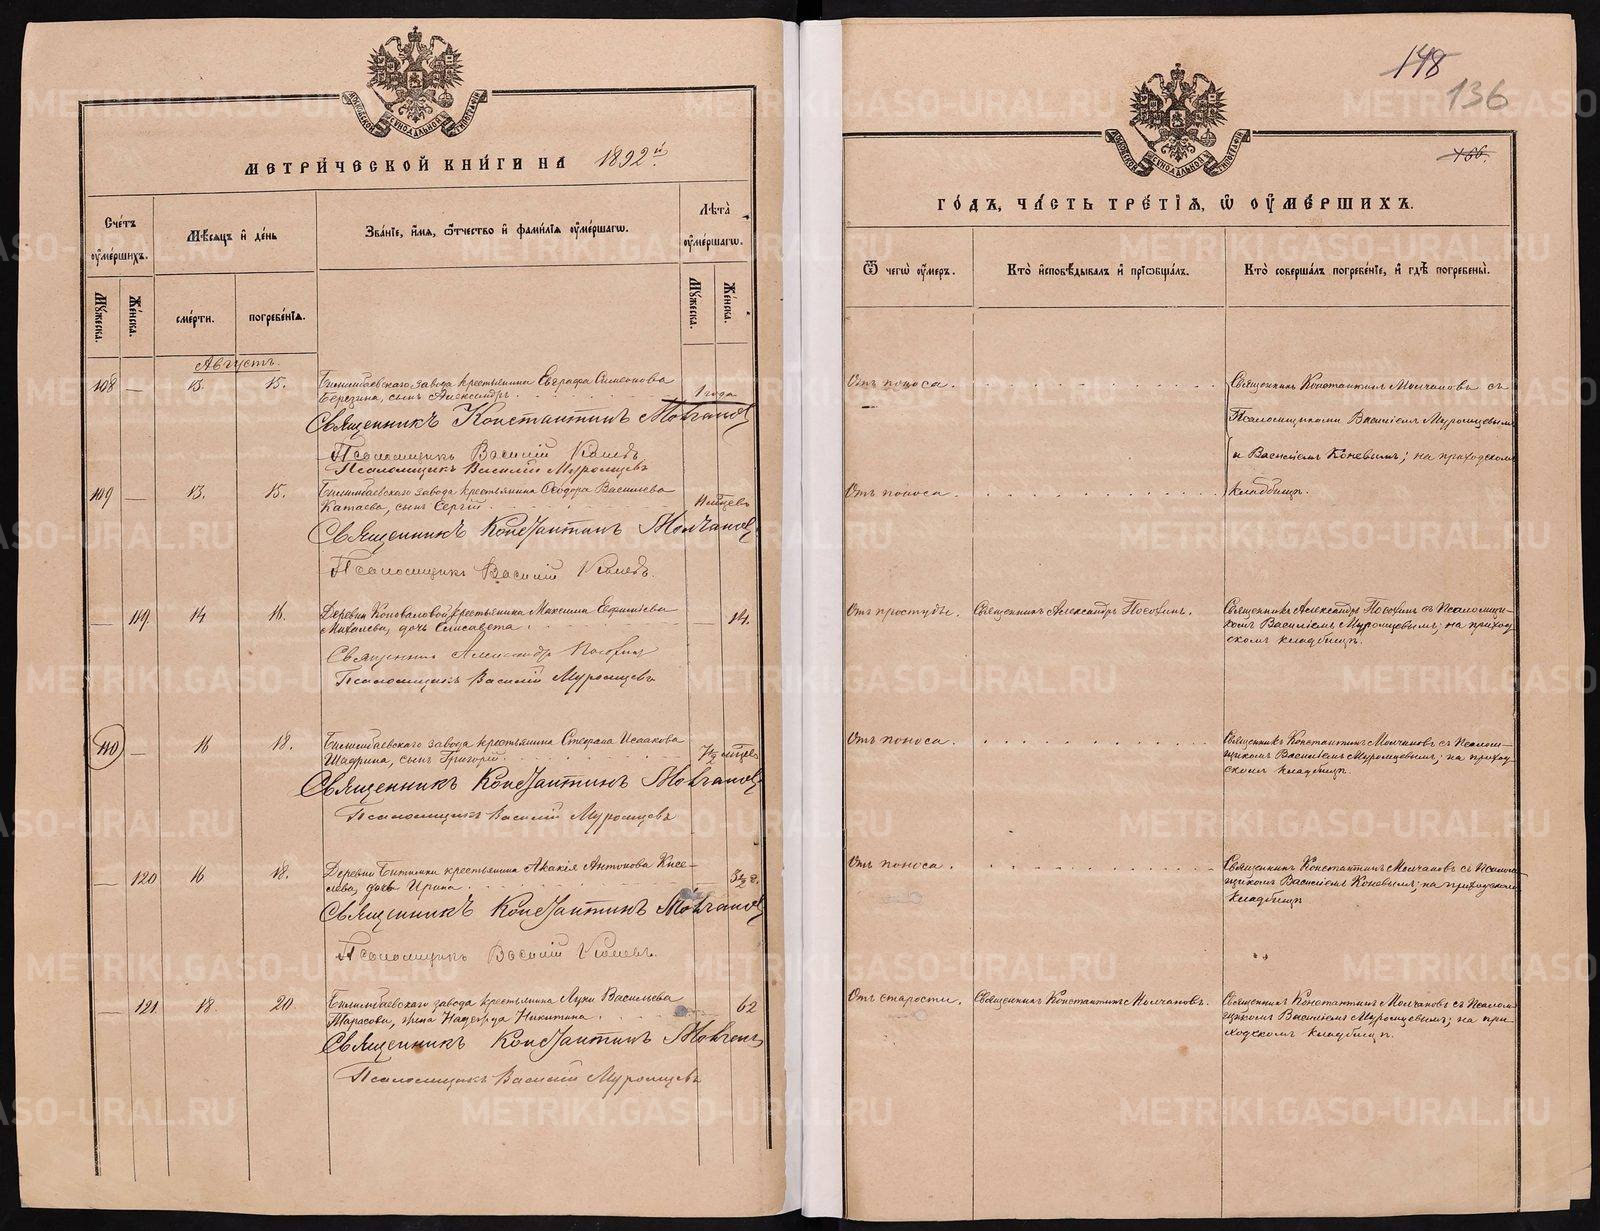 МОСКОВСКОЙ СѴНОДАЛЬНОЙ ТИПОГРАФІИ
МЕТРИ́ЧЕСКОЙ КНИ́ГИ НА 1892й
Сче́тъ ᲂу҆ме́ршихъ.
Мѣ́сяцъ и҆ де́нь
Зва́нїе, и҆́мя, ѻ҆́тчество и҆ фами́лїя ᲂу҆ме́ршагѡ.
Лѣ́та ᲂу҆ме́ршагѡ.
Мꙋ́жеска.
Же́нска.
сме́рти.
погребе́нїѧ.
Мꙋ́жеска.
Же́нска.
Августъ.
108 — 13. 15. Билимбаевскаго завода крестьянина Евграфа Симеонова
Березина, сынъ Александръ. 1 года
Священникъ Константинъ Молчановъ
Псаломщикъ Василій Коневъ
Псаломщикъ Василій Муромцевъ
109 — 13. 15. Билимбаевскаго завода крестьянина Ѳеодора Васильева
Катаева, сынъ Сергій.
Священникъ Константинъ Молчановъ
Псаломщикъ Василій Коневъ.
— 119 14 16. Деревни Коноваловой крестьянина Максима Ефиміева
Михалева, дочь Елисавета. — 14.
Священникъ Александръ
Псаломщикъ Василій Муромцевъ
110 — 16 18. Билимбаевскаго завода крестьянина Стефана Исаакова
Шадрина, сынъ Григорій.
Священникъ Константинъ Молчановъ
Псаломщикъ Василій Муромцевъ
— 120 16 18. Деревни Битимки крестьянина Акакія Антонова Кисе-
лева, дочь Ирина. 3½ г.
Священникъ Константинъ Молчановъ
Псаломщикъ Василій Коневъ.
— 121 18. 20. Билимбаевскаго завода крестьянина Луки Васильева
Тарасова, жена Надежда Никитина. 62
Священникъ Константинъ Молчановъ
Псаломщикъ Василій Муромцевъ
148
136
166.
МОСКОВСКОЙ СѴНОДАЛЬНОЙ ТИПОГРАФІИ
ГО́ДЪ, ЧА́СТЬ ТРЕ́ТЇѦ, Ѡ҆ ОУ҆МЕ́РШИХЪ.
Ѿ чегѡ̀ ᲂу҆́мер.
Кто̀ и҆сповѣ́дывалъ и҆ прїѡбща́лъ.
Кто̀ соверша́лъ погребе́нїе, и҆ гдѣ̀ погребены̀.
Отъ поноса. Священникъ Константинъ Молчановъ съ
Псаломщиками Василіемъ Муромцевымъ
и Василіемъ Коневымъ; на приходскомъ
Отъ поноса. кладбищѣ.
Отъ простуды. Священникъ Александръ Священникъ Александръ съ Псаломщи-
комъ Василіемъ Муромцевымъ; на приход-
скомъ кладбищѣ.
Отъ поноса. Священникъ Константинъ Молчановъ съ Псалом-
щикомъ Василіемъ Муромцевымъ; на приход-
скомъ кладбищѣ.
Отъ поноса. Священникъ Константинъ Молчановъ съ Псалом-
щикомъ Василіемъ Коневымъ; на приходскомъ
кладбищѣ
Отъ старости. Священникъ Константинъ Молчановъ. Священникъ Константинъ Молчановъ съ Псалом-
щикомъ Василіемъ Муромцевымъ; на при-
ходскомъ кладбищѣ.
METRIKI.GASO-URAL.RU